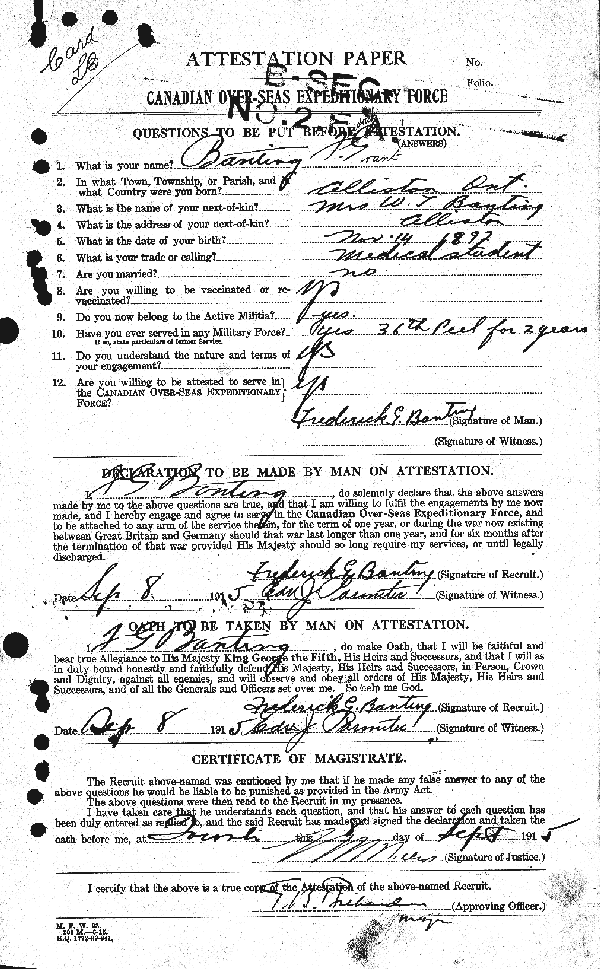 Card
ATTESTATION PAPER
No.
Folio.
B-SEC
CANADIAN OVER-SEAS EXPEDITIONARY FORCE
No. 2
QUESTIONS TO BE PUT BEFORE ATTESTATION.
(ANSWERS)
1. What is your name? Banting F. Grant
2. In what Town, Township, or Parish, and in what Country were you born? Alliston Ont.
3. What is the name of your next-of-kin? Mrs W. T Banting
4. What is the address of your next-of-kin? Alliston
5. What is the date of your birth? Nov. 14 1892
6. What is your trade or calling? Medical student
7. Are you married? no
8. Are you willing to be vaccinated or re-
vaccinated? yes
9. Do you now belong to the Active Militia? yes.
10. Have you ever served in any Military Force? yes 36th Peel for 2 years
If so, state particulars of former Service.
11. Do you understand the nature and terms of
your engagement? yes
12. Are you willing to be attested to serve in
the CANADIAN OVER-SEAS EXPEDITIONARY
FORCE? yes
Frederick G. Banting (Signature of Man.)
(Signature of Witness.)
DECLARATION TO BE MADE BY MAN ON ATTESTATION.
I, F G Banting, do solemnly declare that the above answers
made by me to the above questions are true, and that I am willing to fulfil the engagements by me now
made, and I hereby engage and agree to serve in the Canadian Over-Seas Expeditionary Force, and
to be attached to any arm of the service therein, for the term of one year, or during the war now existing
between Great Britain and Germany should that war last longer than one year, and for six months after
the termination of that war provided His Majesty should so long require my services, or until legally
discharged.
Frederick G. Banting (Signature of Recruit.)
Date Sep 8 1915 (Signature of Witness.)
OATH TO BE TAKEN BY MAN ON ATTESTATION.
I, F G Banting, do make Oath, that I will be faithful and
bear true Allegiance to His Majesty King George the Fifth, His Heirs and Successors, and that I will as
in duty bound honestly and faithfully defend His Majesty, His Heirs and Successors, in Person, Crown
and Dignity, against all enemies, and will observe and obey all orders of His Majesty, His Heirs and
Successors, and of all the Generals and Officers set over me. So help me God.
Frederick G. Banting (Signature of Recruit.)
Date Sep 8 1915 (Signature of Witness.)
CERTIFICATE OF MAGISTRATE.
The Recruit above-named was cautioned by me that if he made any false answer to any of the
above questions he would be liable to be punished as provided in the Army Act.
The above questions were then read to the Recruit in my presence.
I have taken care that he understands each question, and that his answer to each question has
been duly entered as replied to, and the said Recruit has made and signed the declaration and taken the
oath before me, at this 8 day of Sept 1915
(Signature of Justice.)
I certify that the above is a true copy of the Attestation of the above-named Recruit.
(Approving Officer.)
Major
M. F. W. 23.